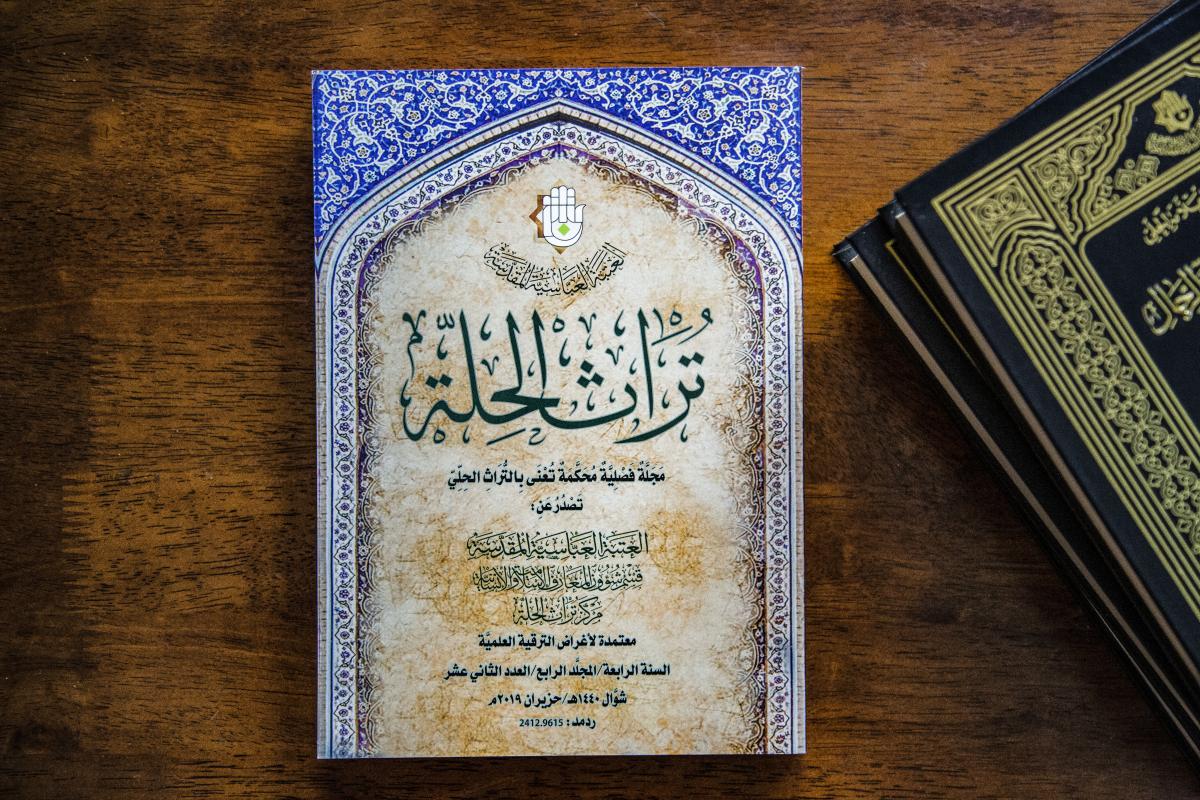 العتبة العباسية المقدسة
تُرَاثُ الحِلَّةِ
مَجَلَّةٌ فَصْلِيَّةٌ مُحَكَّمَةٌ تُعْنَى بِالتُّرَاثِ الحِلِّيّ
تَصْدُرُ عَنِ :
العتبة العباسية المقدسة
قسم شؤون المعارف الإسلامية والإنسانية
مركز تراث الحلة
معتمدة لأغراض الترقية العلميَّة
السنة الرابعة/المجلَّد الرابع/العدد الثاني عشر
شوَّال ١٤٤٠هـ/حزيران ٢٠١٩م
ردمد : 2412.9615